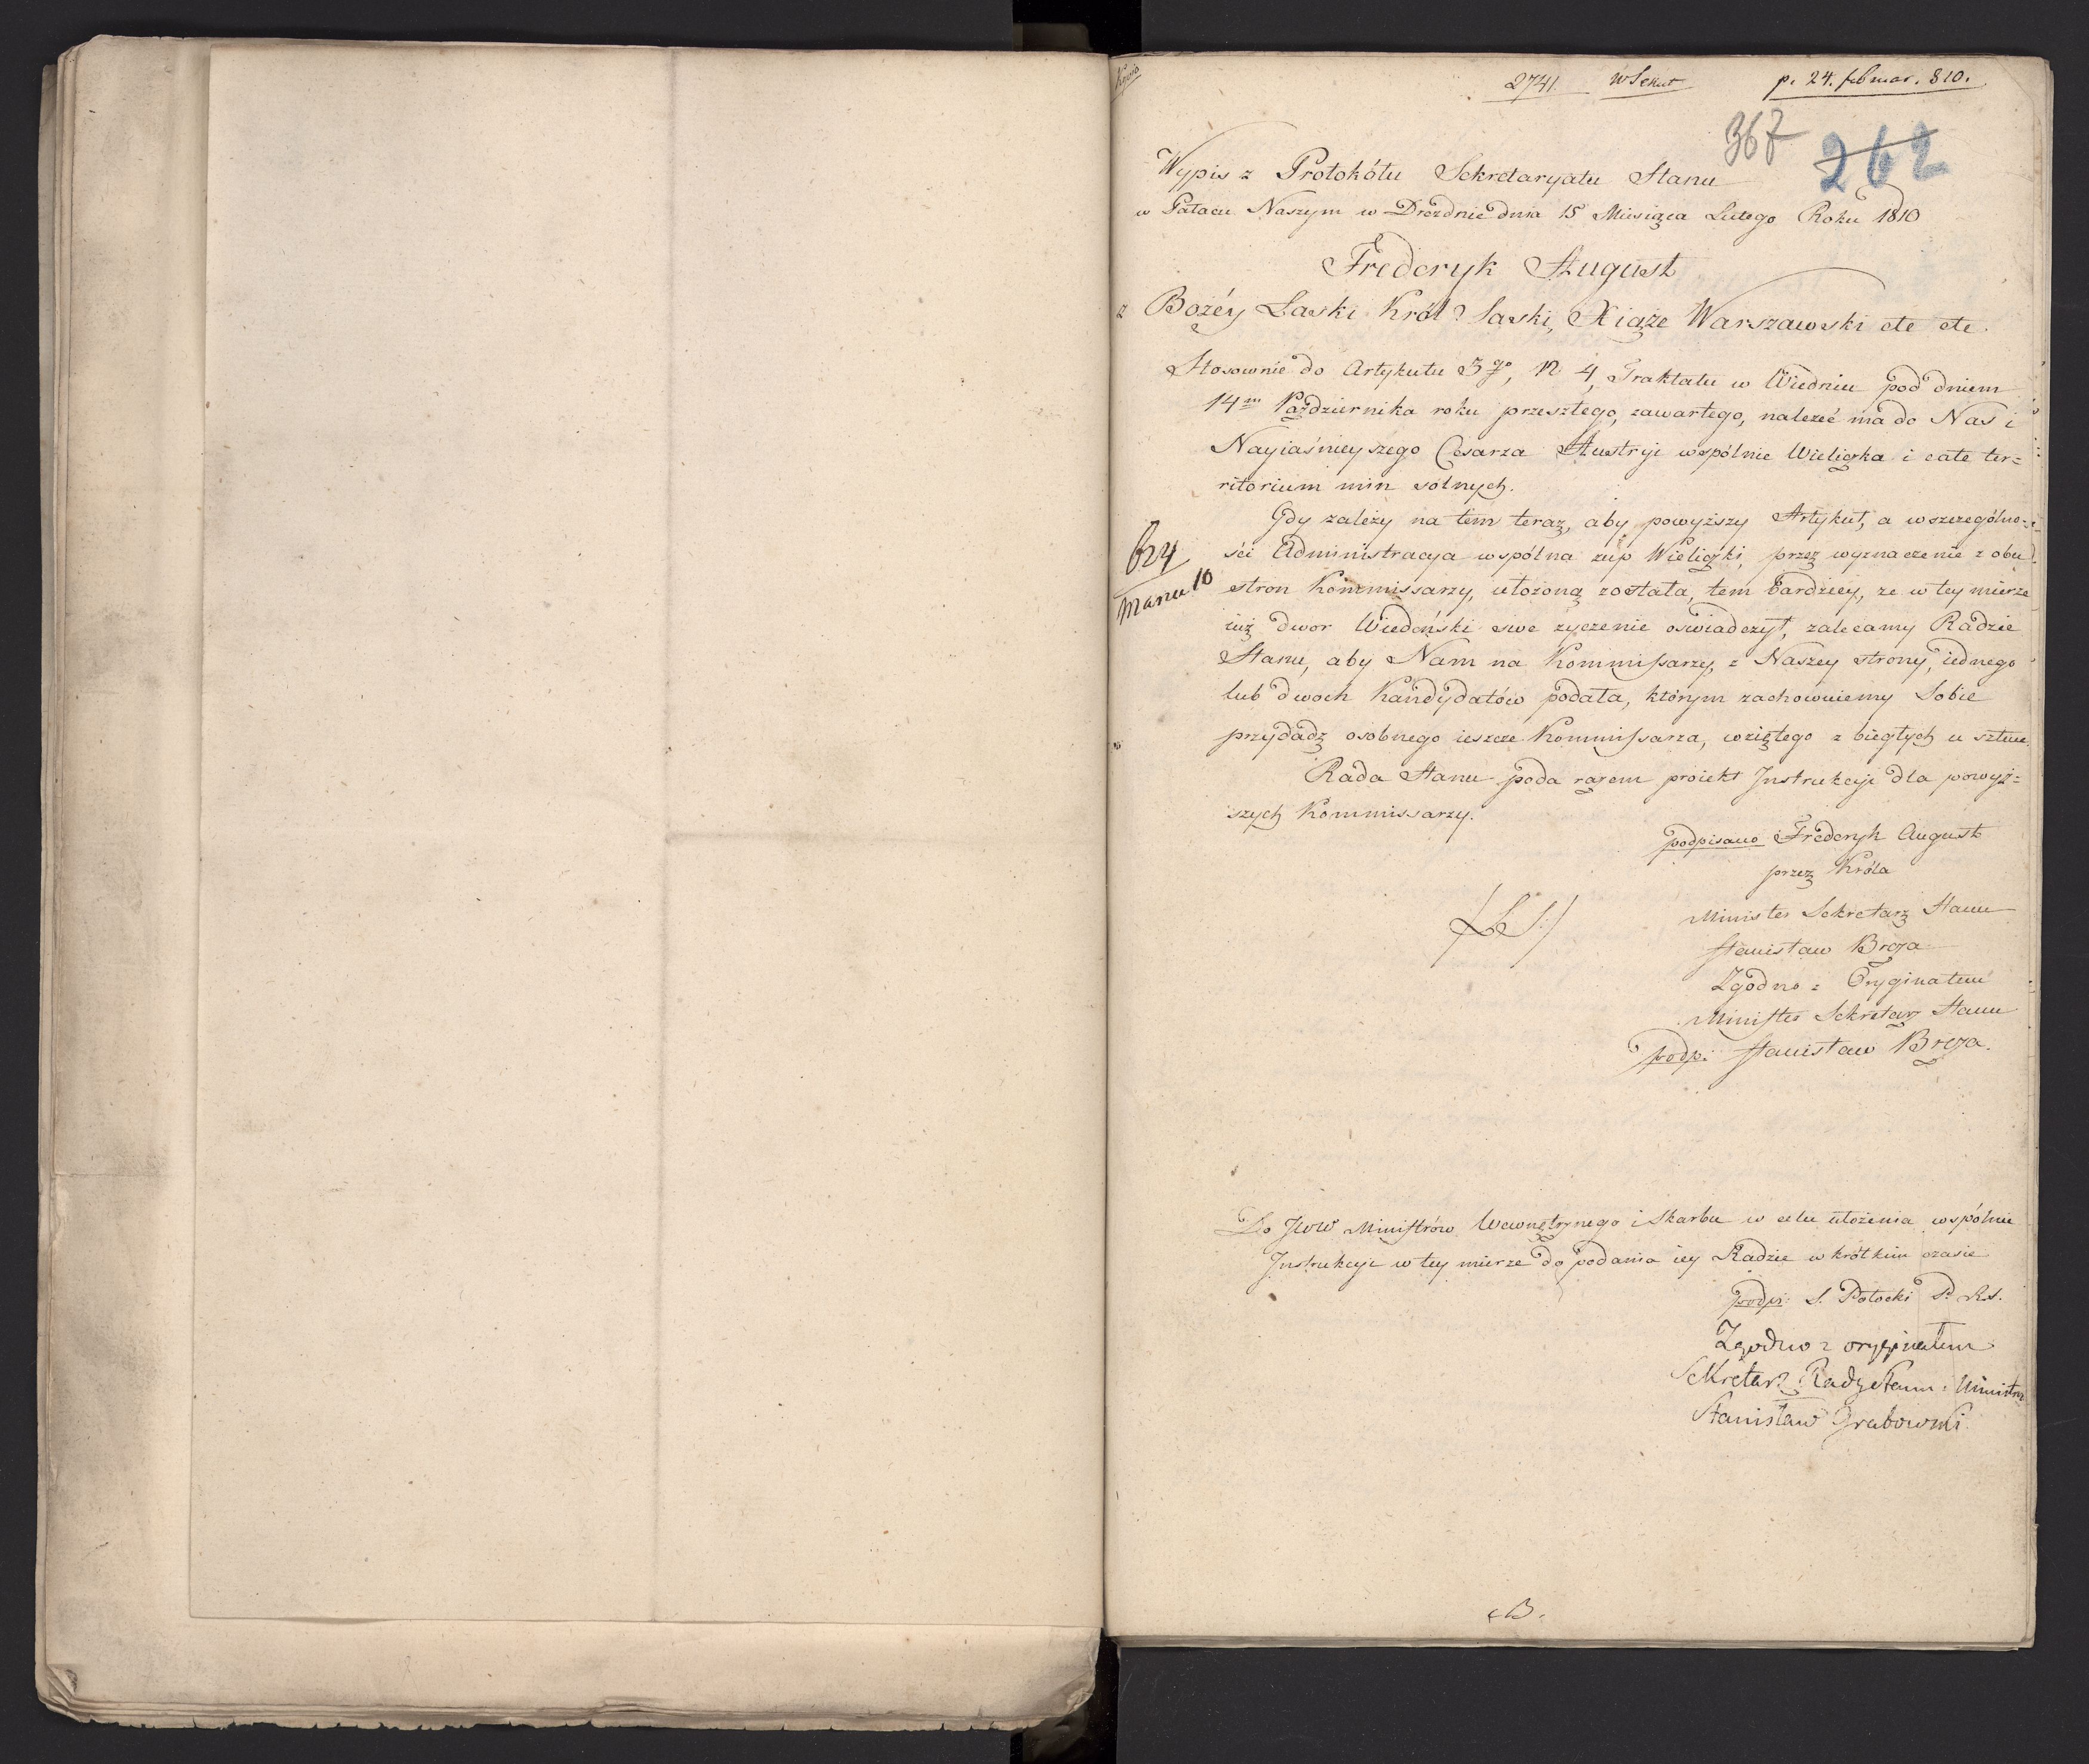 Kopia
2741. W Sekret p. 24. februar. 810.
367 262
Wypis z Protokółu Sekretaryatu Stanu
w Pałacu Naszym w Dreźnie dnia 15 Miesiąca Lutego Roku 1810
Frederyk August
z Bożéy Łaski Król Saski, Xiąże Warszawski etc etc.
Stosownie do Artykułu 3go, N 4, Traktatu w Wiedniu pod dniem
14m Października roku przeszłego, zawartego, należeć ma do Nas i
Nayiaśnieyszego Cesarza Austryi wspólnie Wieliczka i całe ter=
ritorium min solnych.
Gdy zależy na tém teraz, aby powyższy Artykuł, a wszczególno=
ści Administracya wspólna żup Wieliczki, przez wyznaczenie z obu
stron Kommissarzy, ułożoną została, tem bardziey, że w tey mierze
iuż dwor Wiedeński swe życzenie oświadczył, zalecamy Radzie
Stanu, aby Nam na Kommissarzy, z Naszey strony, iednego
lub dwoch Kandydatów podała, którym zachowuiemy Sobie
przydadź osobnego ieszcze Kommissarza, wziętego z biegłych w sztuce.
Rada Stanu poda razem proiekt Instrukcyi dla powyż=
szych Kommissarzy.
podpisano Frederyk August
przez Króla
Minister Sekretarz Stanu
Stanisław Breza
(L.S.)
Zgodno z Oryginałem
Minister Sekretarz Stanu
podp. Stanisław Breza.
Do JWW Ministrów Wewnętrznego i Skarbu w celu ułożenia wspólnie
Instrukcyi w tey mierze do podania iey Radzie w krótkim czasie
podp: S. Potocki P. R.S.
Zgodno z oryginałem
Sekretarz Rady Stanu i Ministrów
Stanisław Grabowski
B.